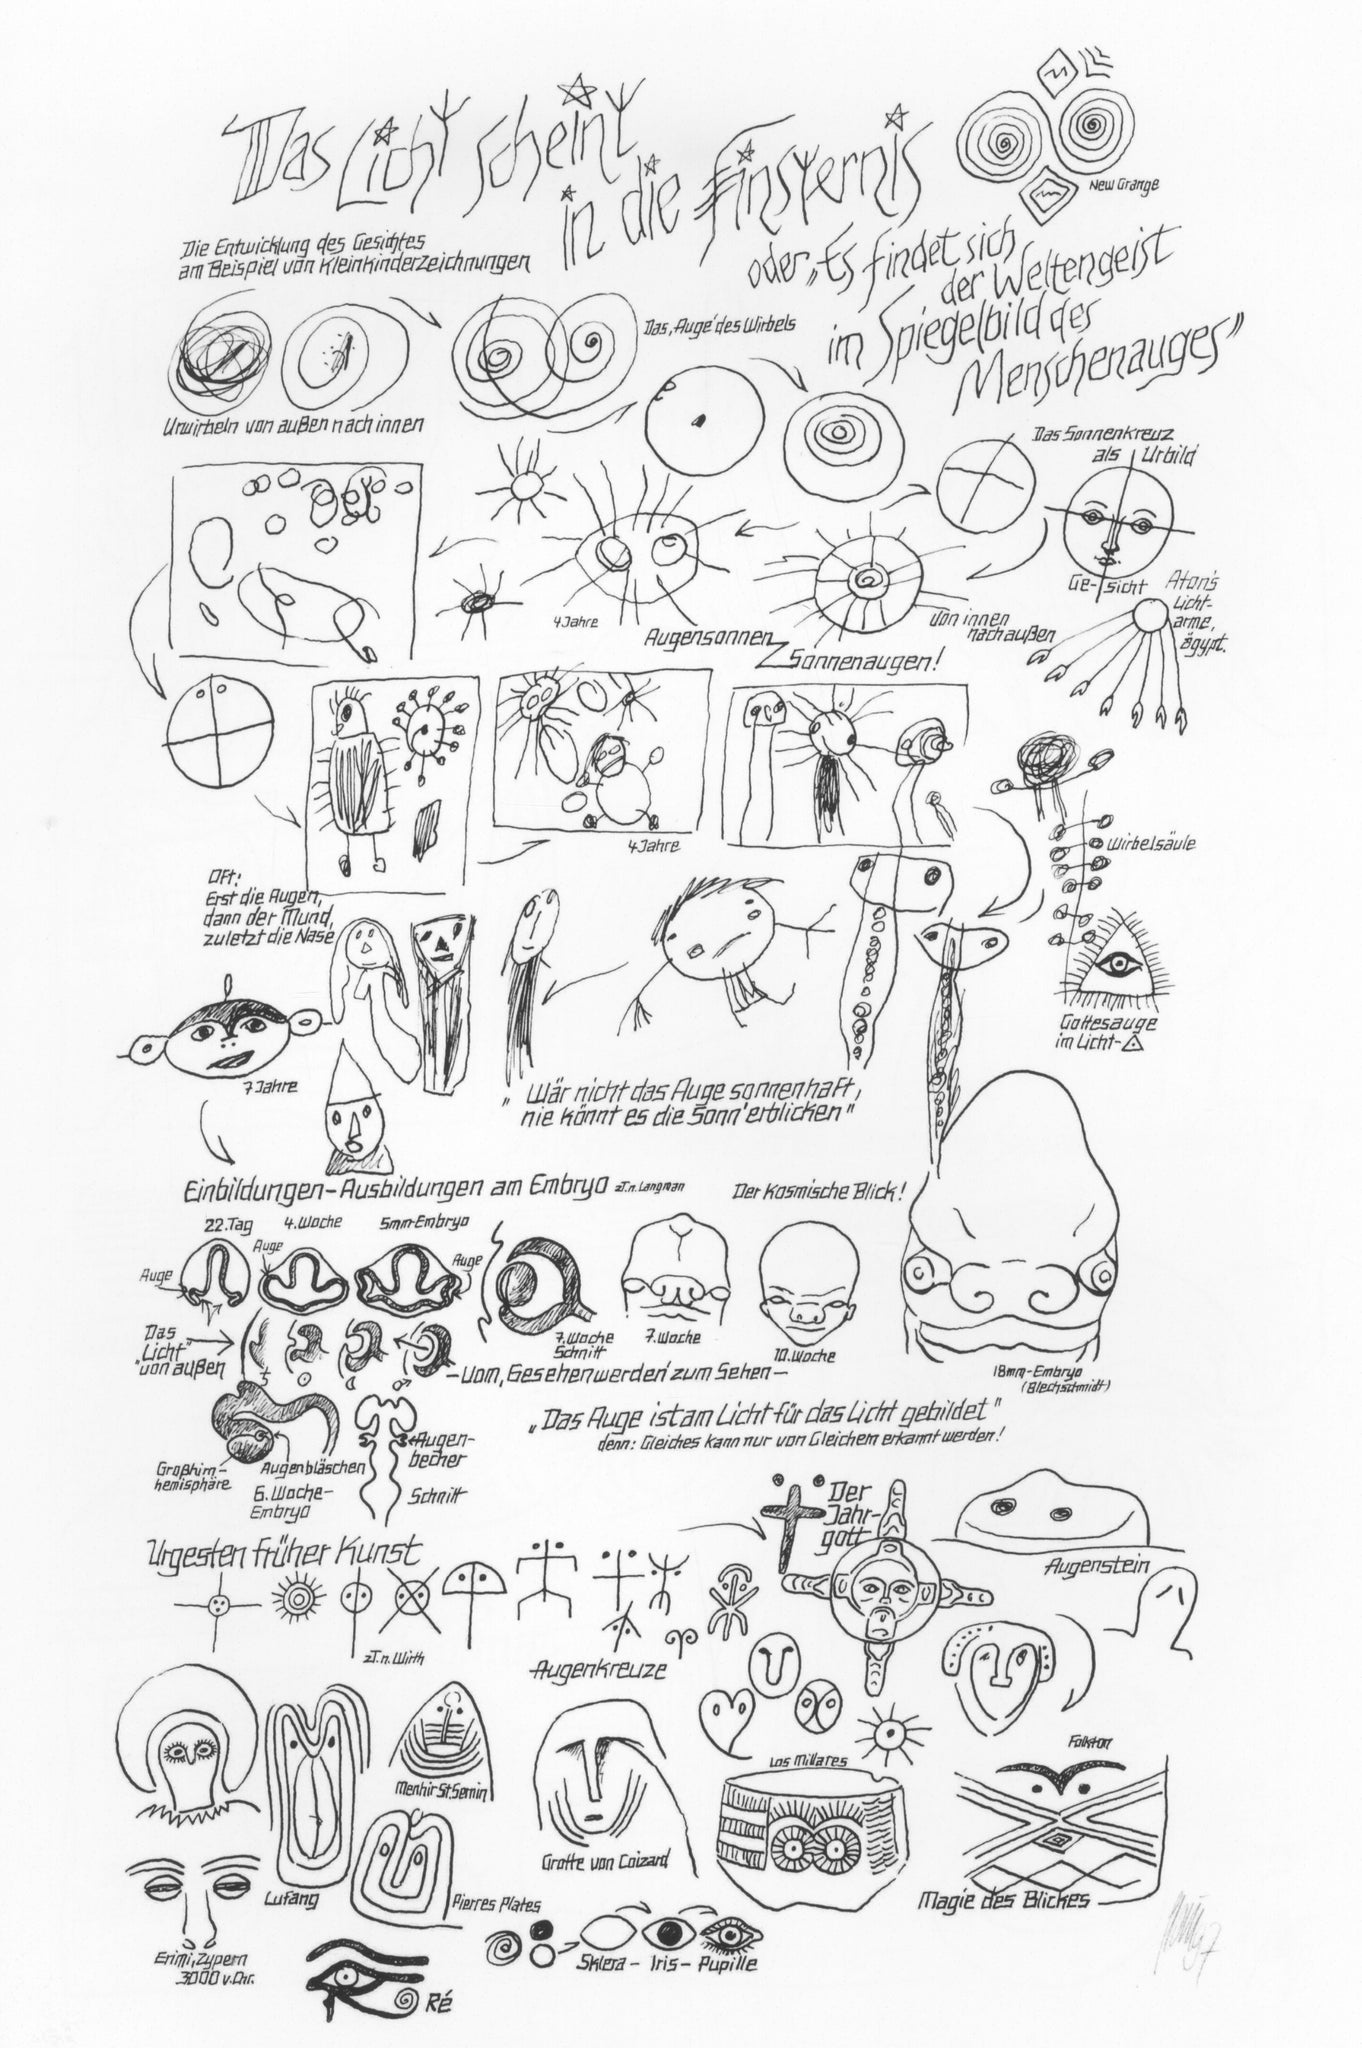 Das Licht scheint
in die Finsternis
New Grange
oder „Es findet sich
der Weltengeist
im Spiegelbild des
Menschenauges"
Die Entwicklung des Gesichtes
am Beispiel von Kleinkinderzeichnungen
Das ‚Auge' des Wirbels
Urwirbeln von außen nach innen
Das Sonnenkreuz
als Urbild
Ge-sicht
Aton's
Licht-
arme,
ägypt.
4 Jahre
Augensonnen
Sonnenaugen!
Von innen
nach außen
4 Jahre
Wirbelsäule
Oft:
Erst die Augen,
dann der Mund,
zuletzt die Nase
7 Jahre
Gottesauge
im Licht-
„Wär nicht das Auge sonnenhaft,
nie könnt es die Sonn' erblicken"
Einbildungen-Ausbildungen am Embryo z.T.n. Langman
Der Kosmische Blick!
22. Tag
4. Woche
5mm-Embryo
Auge
Auge
Auge
Das
"Licht"
von außen
7. Woche
Schnitt
7. Woche
10. Woche
18mm-Embryo
(Blechschmidt)
-Vom ‚Gesehenwerden' zum Sehen-
„Das Auge ist am Licht für das Licht gebildet"
denn: Gleiches kann nur von Gleichem erkannt werden!
Großhirn-
hemisphäre
Augenbläschen
6. Woche-
Embryo
Augen-
becher
Schnitt
Der
Jahr-
gott
Augenstein
Urgesten früher Kunst
z.T.n. Wirth
Augenkreuze
Menhir St. Sernin
Los Millares
Folkton
Lufang
Pierres Plates
Grotte von Coizard
Magie des Blickes
Erimi, Zypern
3000 v. Chr.
Ré
Sklera - Iris - Pupille